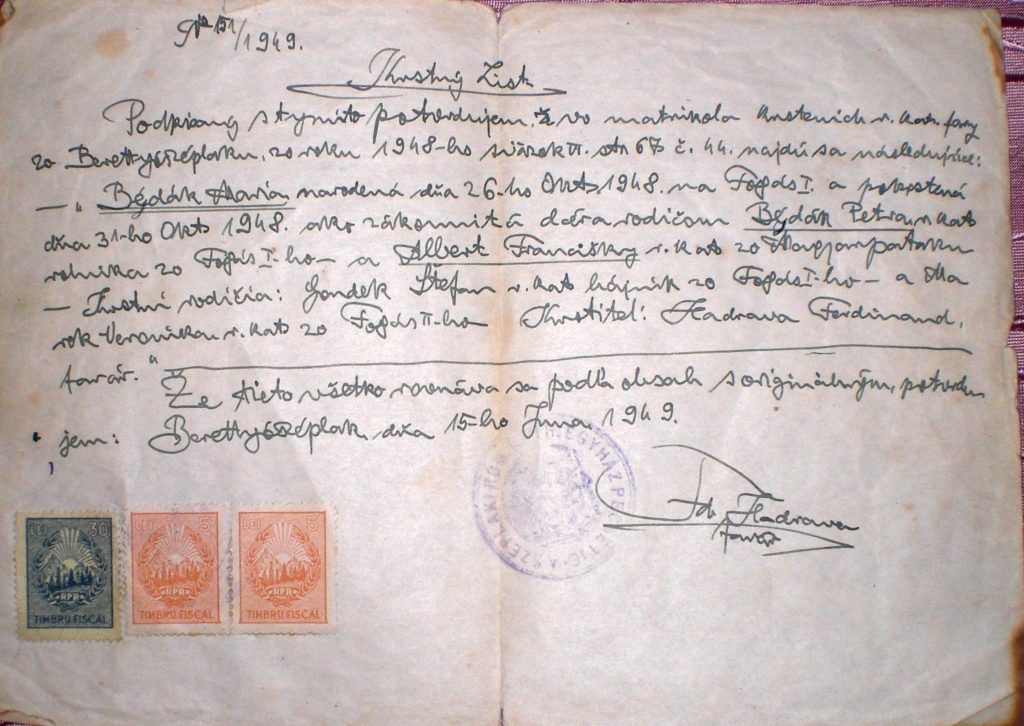 No 151/1949.
Krstný List
Podpísaný s týmto potvrdujem, že vo matrikola krstenich r. kat. fary
zo Berettyószéplaku, zo roku 1948-ho sväzok II. str 67 č. 44. najdú sa následujúce:
— „Bejdák Maria narodená dňa 26-ho Okt. 1948. na Fogás I. a pokrstená
dňa 31-ho Okt 1948. ako zákonnitá dcéra rodičom Bejdák Petra r. kat
rolníka zo Fogás I.-ho — a Albert Francišky r. kat zo Magyarpataku
— Krstní rodičia: Gondek Štefan r. kat hájnik zo Fogás I.-ho — a Ma
rek Veronika r. kat zo Fogás II-ho Krstitel: Hadrava Ferdinand,
farár."
Že tieto všetko rovnáva sa podľa obsah s originálným, potvrdu
jem: Berettyószéplak, dňa 15-ho Juna 1949.
Fd. Hadrava
farár
LEI 30
RPR
TIMBRU FISCAL
LEI 5
RPR
TIMBRU FISCAL
LEI 5
RPR
TIMBRU FISCAL